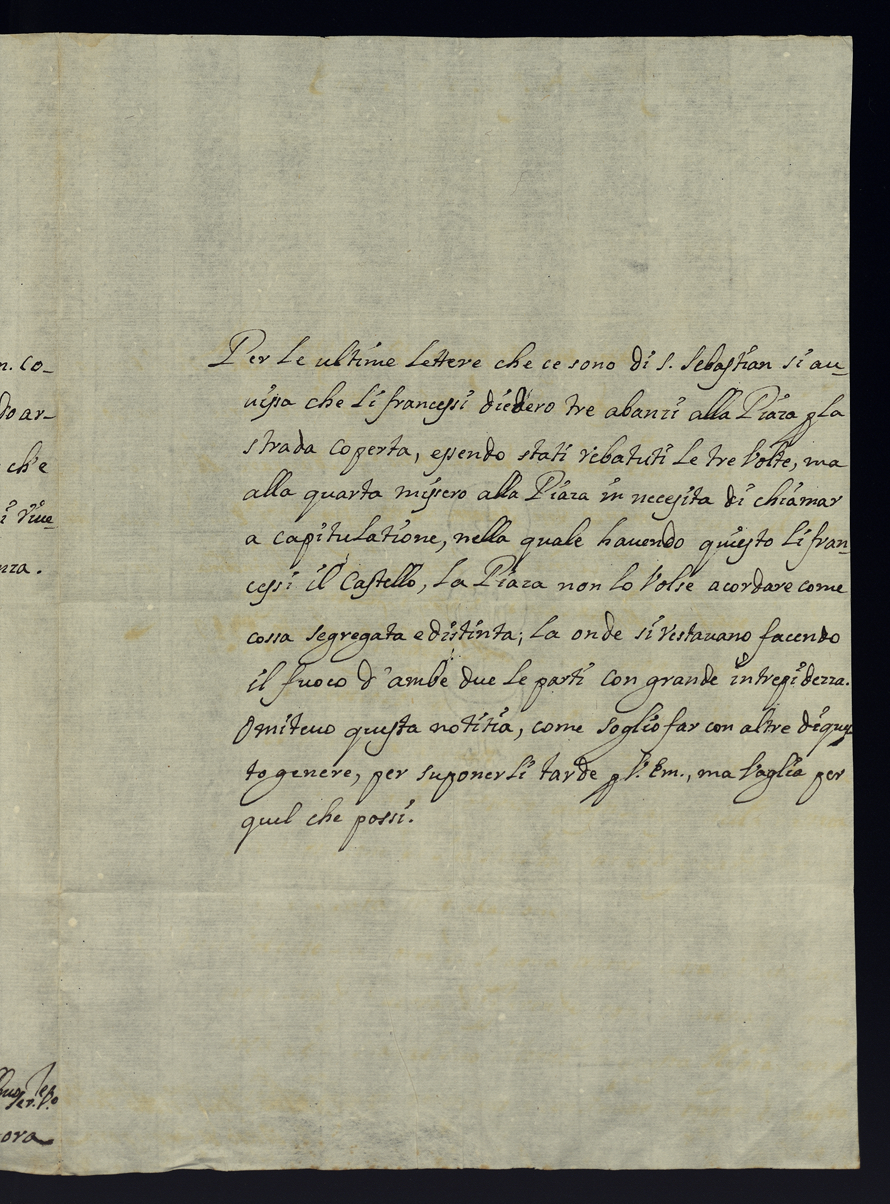 n. co_
do ar_
che
i vive_
nza.
Per le ultime lettere che ce sono di S. Sebastian si au_
uissa che li francessi diedero tre abanzi alla Piaza p La
strada coperta, essendo stati rebatuti le tre volte, ma
alla quarta missero alla Piaza in necesita di chiamar
a capitulatione, nella quale hauendo quiesto li fran_
cessi il Castello, la Piaza non lo volse acordare come
cossa segregata e distinta; la onde si restauano facendo
il fuoco d'ambe due le parti con grande intrepidezza.
Omiteuo questa notitia, come soglio far con altre di ques
to genere, per suponerli tarde p V. Em., ma vaglia per
quel che possi.
ora